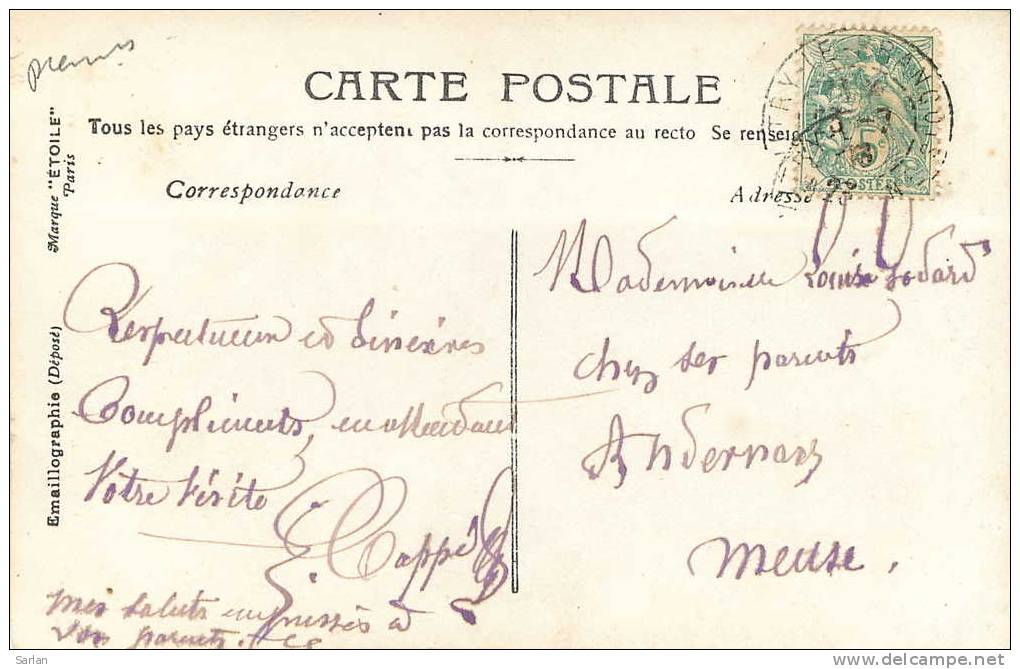 CARTE POSTALE
Tous les pays étrangers n'acceptent pas la correspondance au recto Se renseig
Correspondance
Adresse
Marque "ÉTOILE"
Paris
Emaillographie (Déposé)
POSTES
Respectueux et Sincères
Compliments, en attendant
Votre Visite
E. Cappé
mes saluts empressés à
Vos parents
Mademoiselle Louise Godard
chez ses parents
Andernay
Meuse.
Sarlan
delcampe.net